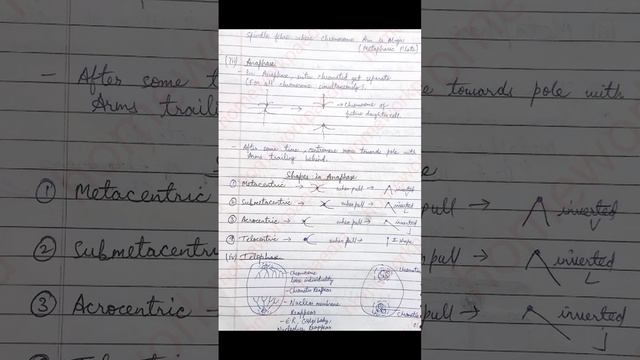 Spindle fibre where chromosome Arm is Align
(Metaphasic Plate)
(iii) Anaphase
- In Anaphase, sister chromatid get separate
(For all chromosome simultaneously).
→ Chromosome of
future daughter cell.
- After some time, centromere move towards pole with
Arms trailing behind.
Shapes in Anaphase
① Metacentric → when pull → inverted
② Submetacentric → when pull → inverted L
③ Acrocentric → when pull → inverted J
④ Telocentric → when pull → I shape
(iv) Telophase
→ Chromosome
lose individuality
- Chromatin Reappear
- Nuclear membrane
Reappears
- E.R, Golgi body,
Nucleolus Reappears
- After some t
Arms trailin
① Metacentric
② Submetacentri
③ Acrocentric -
e towards pole with
pull → inverted V
pull → inverted L
pull → inverted J